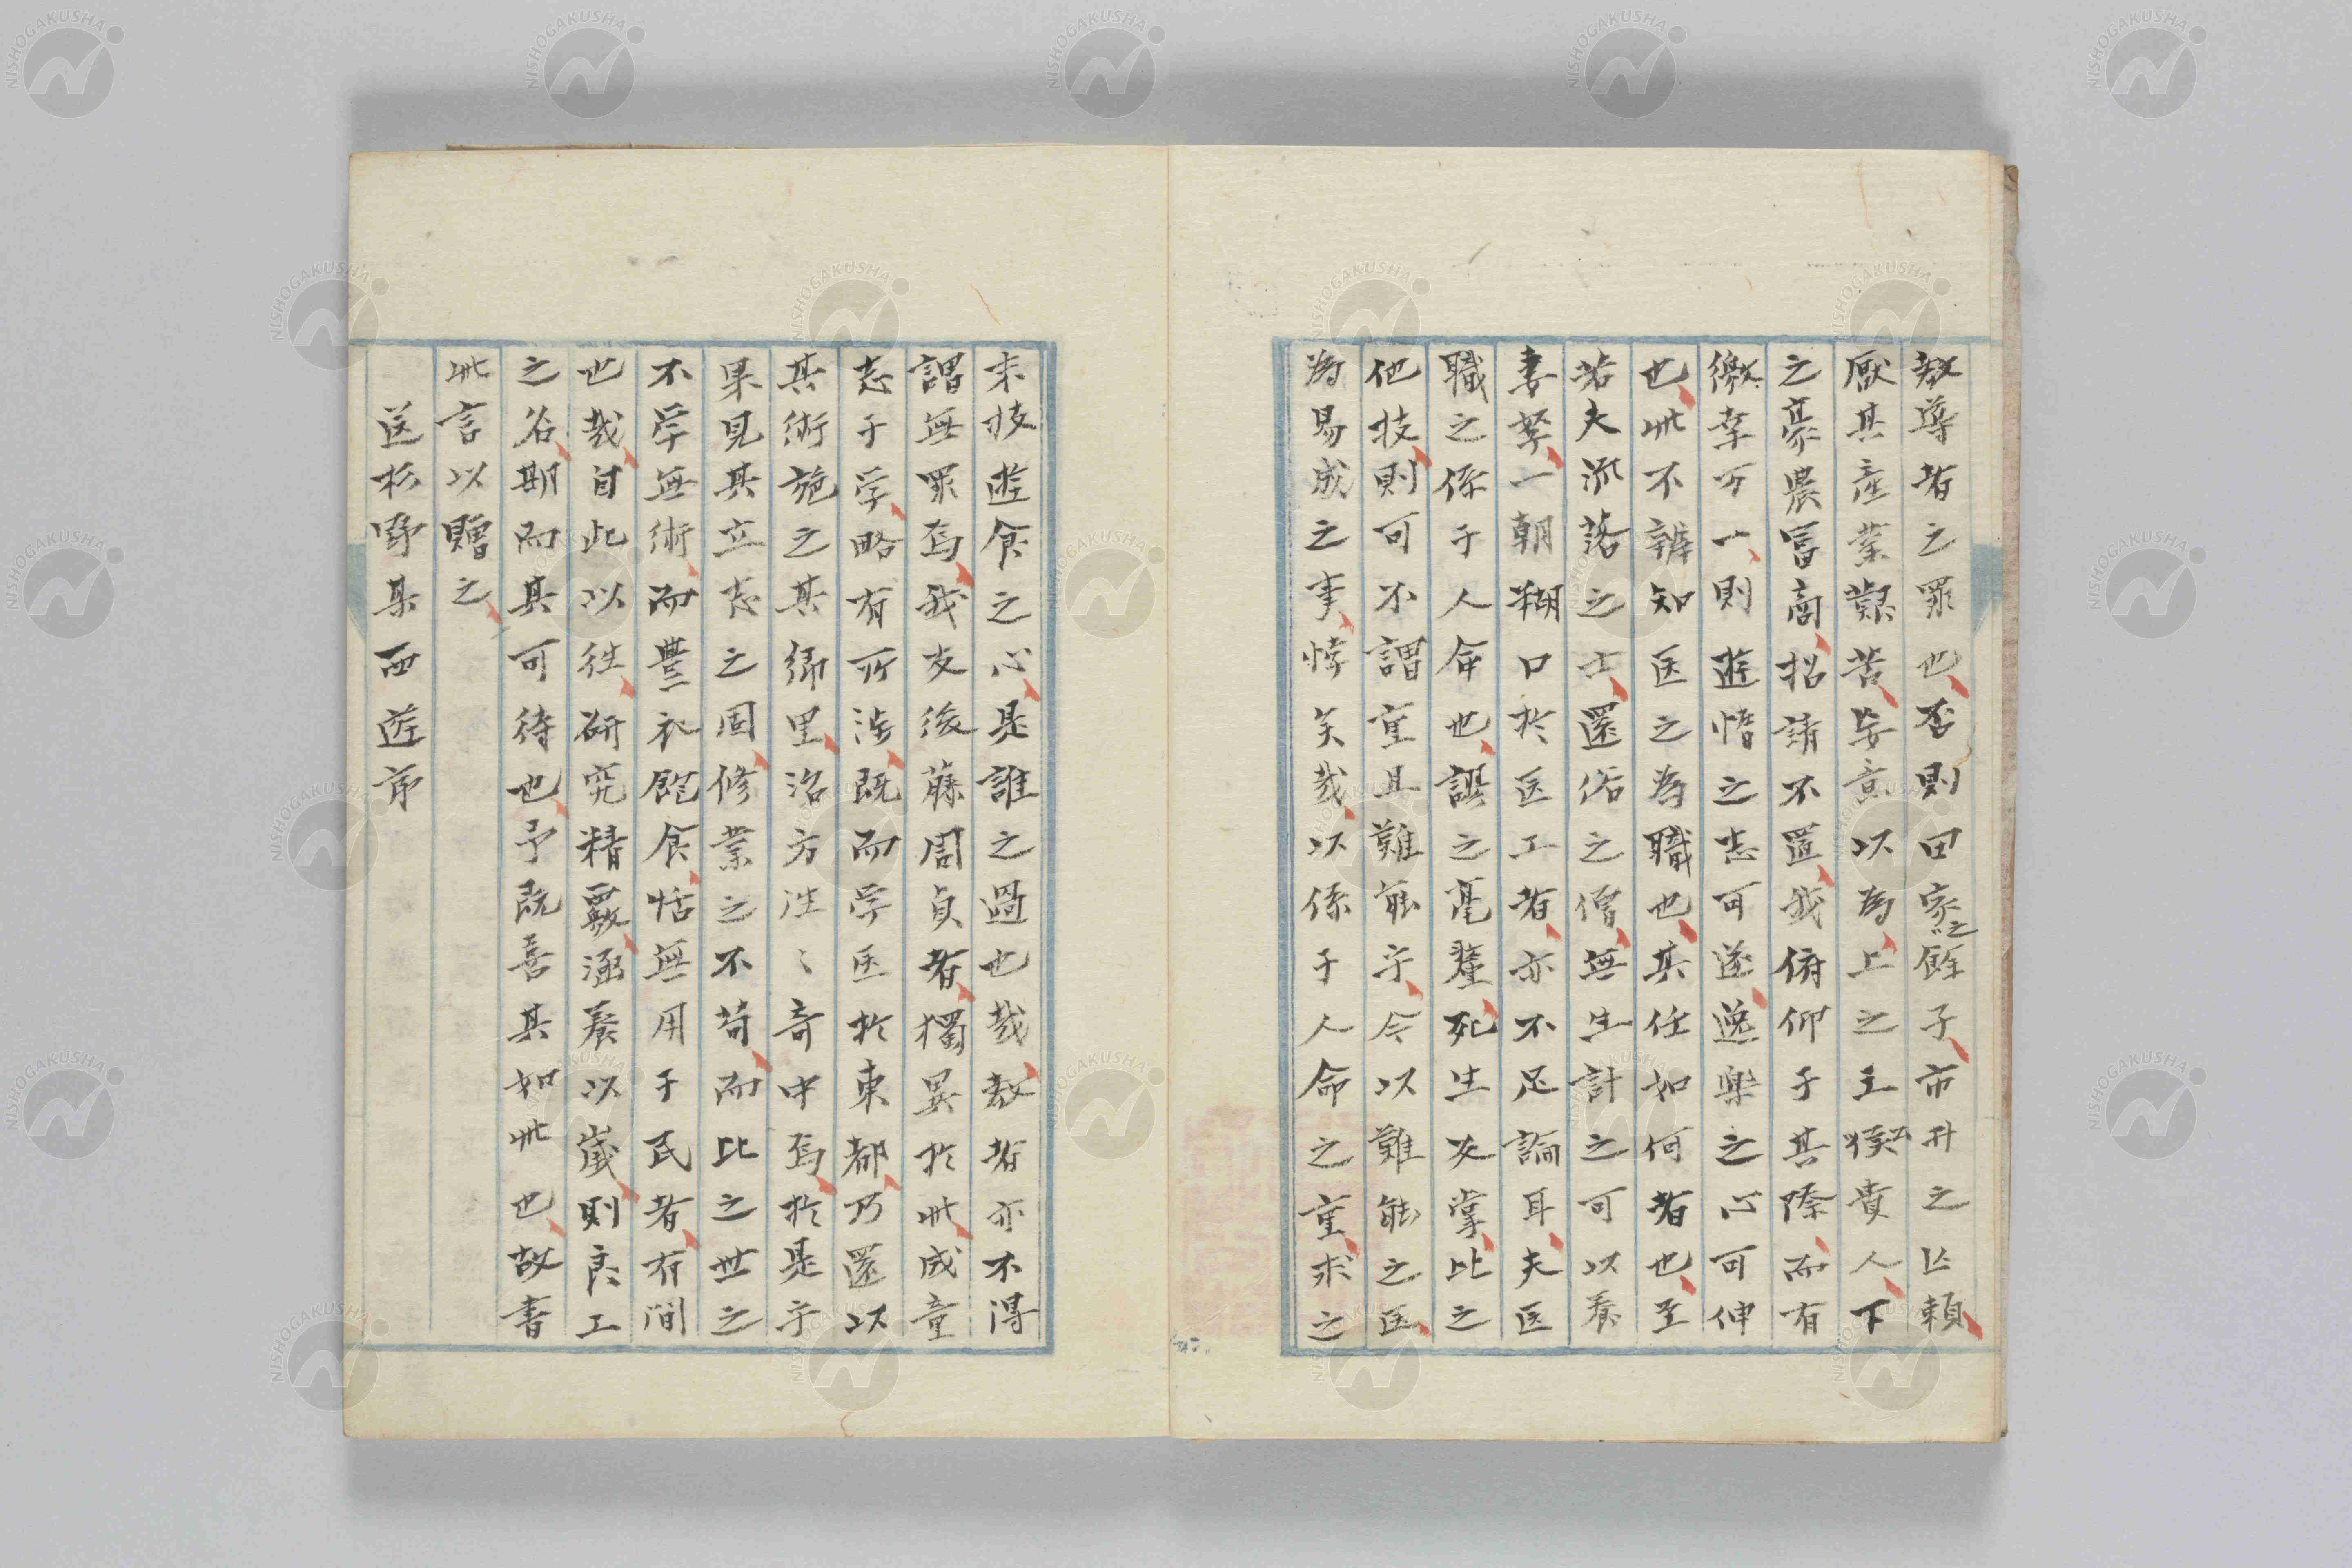 教導者之罪也否則田家之餘子市井之亡頼
厭其産業艱苦妄意以為上之王侯貴人下
之豪農冨商招請不置我俯仰于其際而有
徼幸万一則遊惰之志可遂逸樂之心可伸
也此不辨知医之為職也其任如何者也至
若夫流落之士還俗之僧無生計之可以養
妻孥一朝糊口於医工者亦不足論耳夫医
職之係于人命也誤之毫釐死生必掌比之
他技則可不謂重且難能乎今以難能之医
為易成之事悖矣哉以係于人命之重求之
末技遊食之心是誰之過也哉教者亦不得
謂無罪焉我友後藤周貞者獨異於此成童
志于学略有所渉既而学医於東都乃還以
其術施之其郷里洽方往々奇中焉於是乎
果見其立志之固修業之不苟而比之世之
不学無術而豊衣飽食恬無用于民者有間
也哉自此以往研究精覈涵養以歳則良工
之名期而其可待也予既喜其如此也故書
此言以贈之
送杉𡌛某西遊序
NISHOGAKUSHA